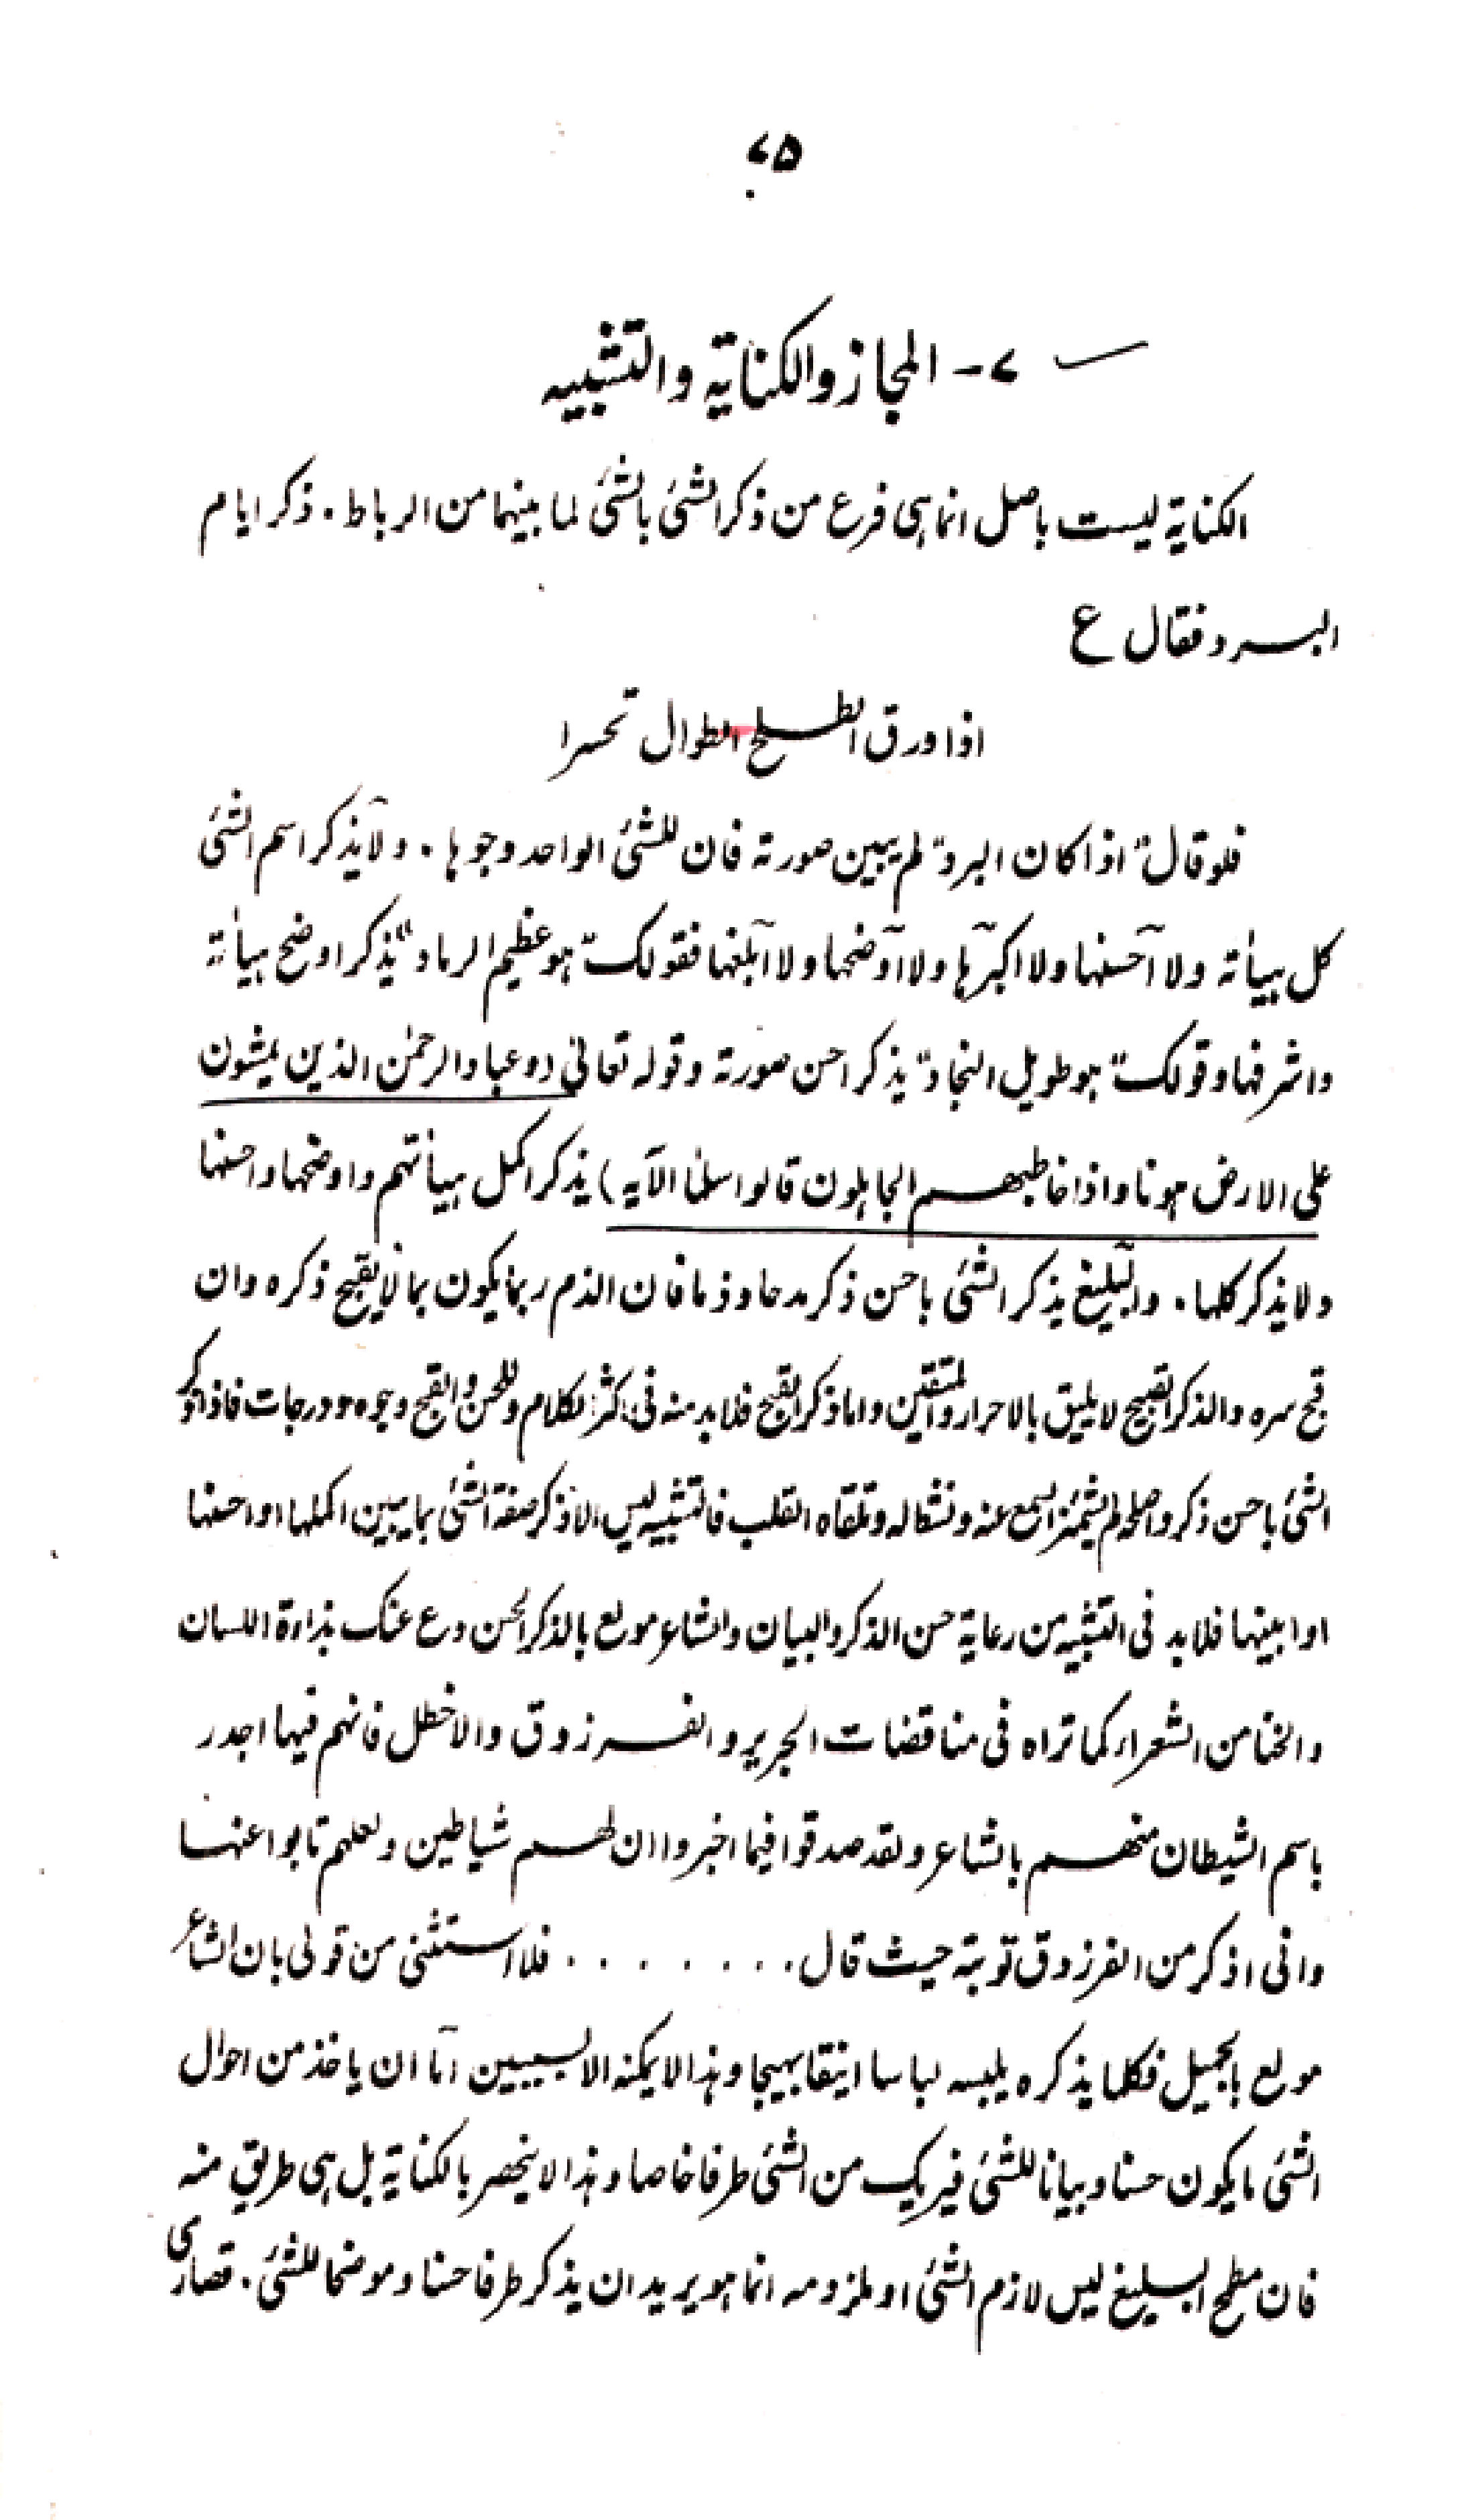 ۷۵
۷- المجاز والکنایة والتشبیه
الکنایة لیست باصل انما ہی فرع من ذکر الشئی بالشئی لما بینہما من الرباط۔ ذکر ایام
البسرد فقال ع
اذا ورق الطلح الطوال تحسرا
فلو قال" اذا کان البرد" لم یبین صورتہ فان للشئی الواحد وجوہا۔ ولا یذکر اسم الشئی
کل ہیأتہ ولا احسنہا ولا اکبرہا ولا اوضحہا ولا ابلغہا فقولک" ہو عظیم الرماد" یذکر اوضح ہیأتہ
واشرفہا وقولک" ہو طویل النجاد" یذکر احسن صورتہ وقولہ تعالیٰ (وعباد الرحمٰن الذین یمشون
علی الارض ہونا واذا خاطبھم الجاہلون قالوا سلٰما الآیہ) یذکر اکمل ہیأتہم واوضحہا واحسنہا
ولا یذکر کلہا۔ والبلیغ یذکر الشئی باحسن ذکر مدحا وذما فان الذم ربما یکون بما لا یقبح ذکرہ وان
قبح سرہ والذکر القبیح لا یلیق بالاحرار والمتقین واما ذکر القبح فلا بد منہ فی اکثر الکلام وللحسن والقبح وجوہ ودرجات فاذا ذکر
الشئی باحسن ذکر واصلحہ لم یشمئز السمع عنہ وتلقاہ القلب فالتشبیہ لیس الا ذکر صفة الشئی بما یبین اکملہا او احسنہا
او ابینہا فلا بد فی التشبیہ من رعایة حسن الذکر والبیان والشاعر مولع بالذکر الحسن ودع عنک بذاءة اللسان
والخنا من الشعراء کما تراہ فی مناقضات الجریر والفرزدق والاخطل فانہم فیہا اجدر
باسم الشیطان منھم بالشاعر ولقد صدقوا فیما اخبروا ان لھم شیاطین ولعلہم تابوا عنہا
وانی اذکر من الفرزدق توبة حیث قال. . . . . . . . فلا استثنی من قولی بان الشاعر
مولع بالجمیل فکلما یذکرہ یلبسہ لباسا انیقا بہیجا وہذا لا یمکنہ الا بسببین اما ان یاخذ من احوال
الشئی ما یکون حسنا وبیانا للشئی فیریک من الشئی طرفا خاصا وہذا لا ینحصر بالکنایة بل ہی طریق منہ
فان مطمح البلیغ لیس لازم الشئی او ملزومہ انما ہو یرید ان یذکر طرفا حسنا وموضحا للشئی۔ قصاری